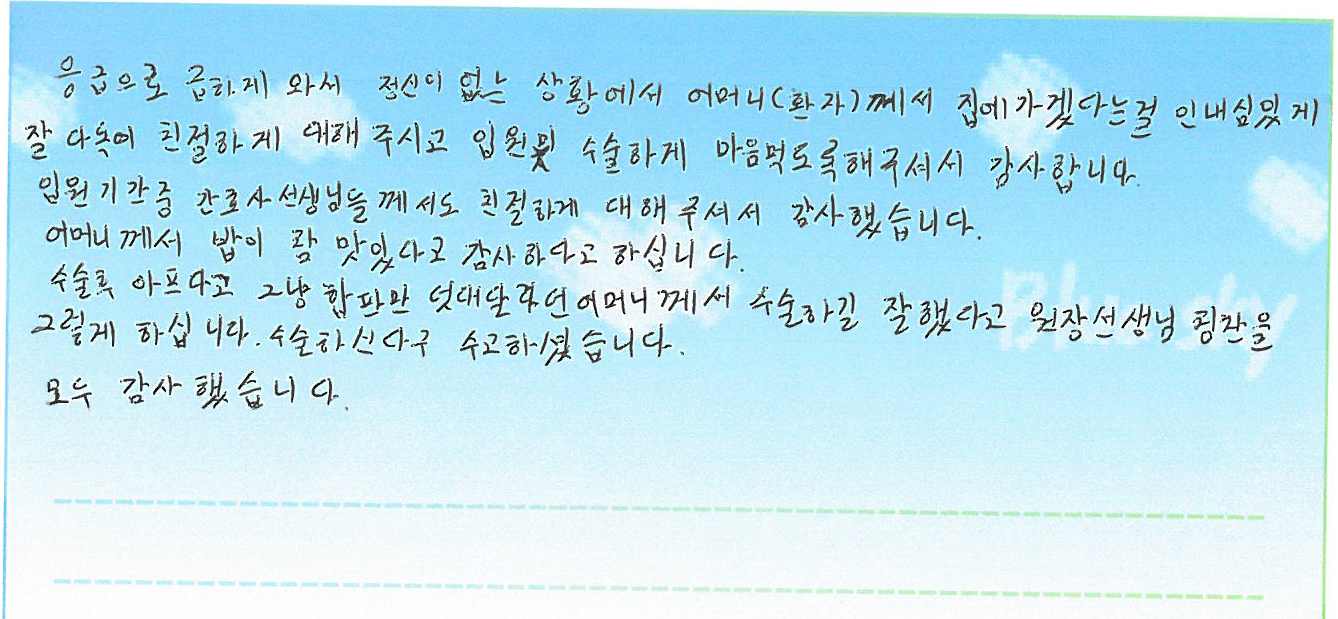 응급으로 급하게 와서 정신이 없는 상황에서 어머니(환자)께서 집에가겠다는걸 인내심있게
잘 다독여 친절하게 대해 주시고 입원및 수술하게 마음먹도록해주셔서 감사합니다.
입원기간중 간호사선생님들께서도 친절하게 대해주셔서 감사했습니다.
어머니께서 밥이 참 맛있다고 감사하다고 하십니다.
수술후 아프다고 그냥 합판만 덧대달라던어머니께서 수술하길 잘했다고 원장선생님 칭찬을
그렇게 하십니다. 수술하신다구 수고하셨습니다.
모두 감사했습니다.
Bluesky